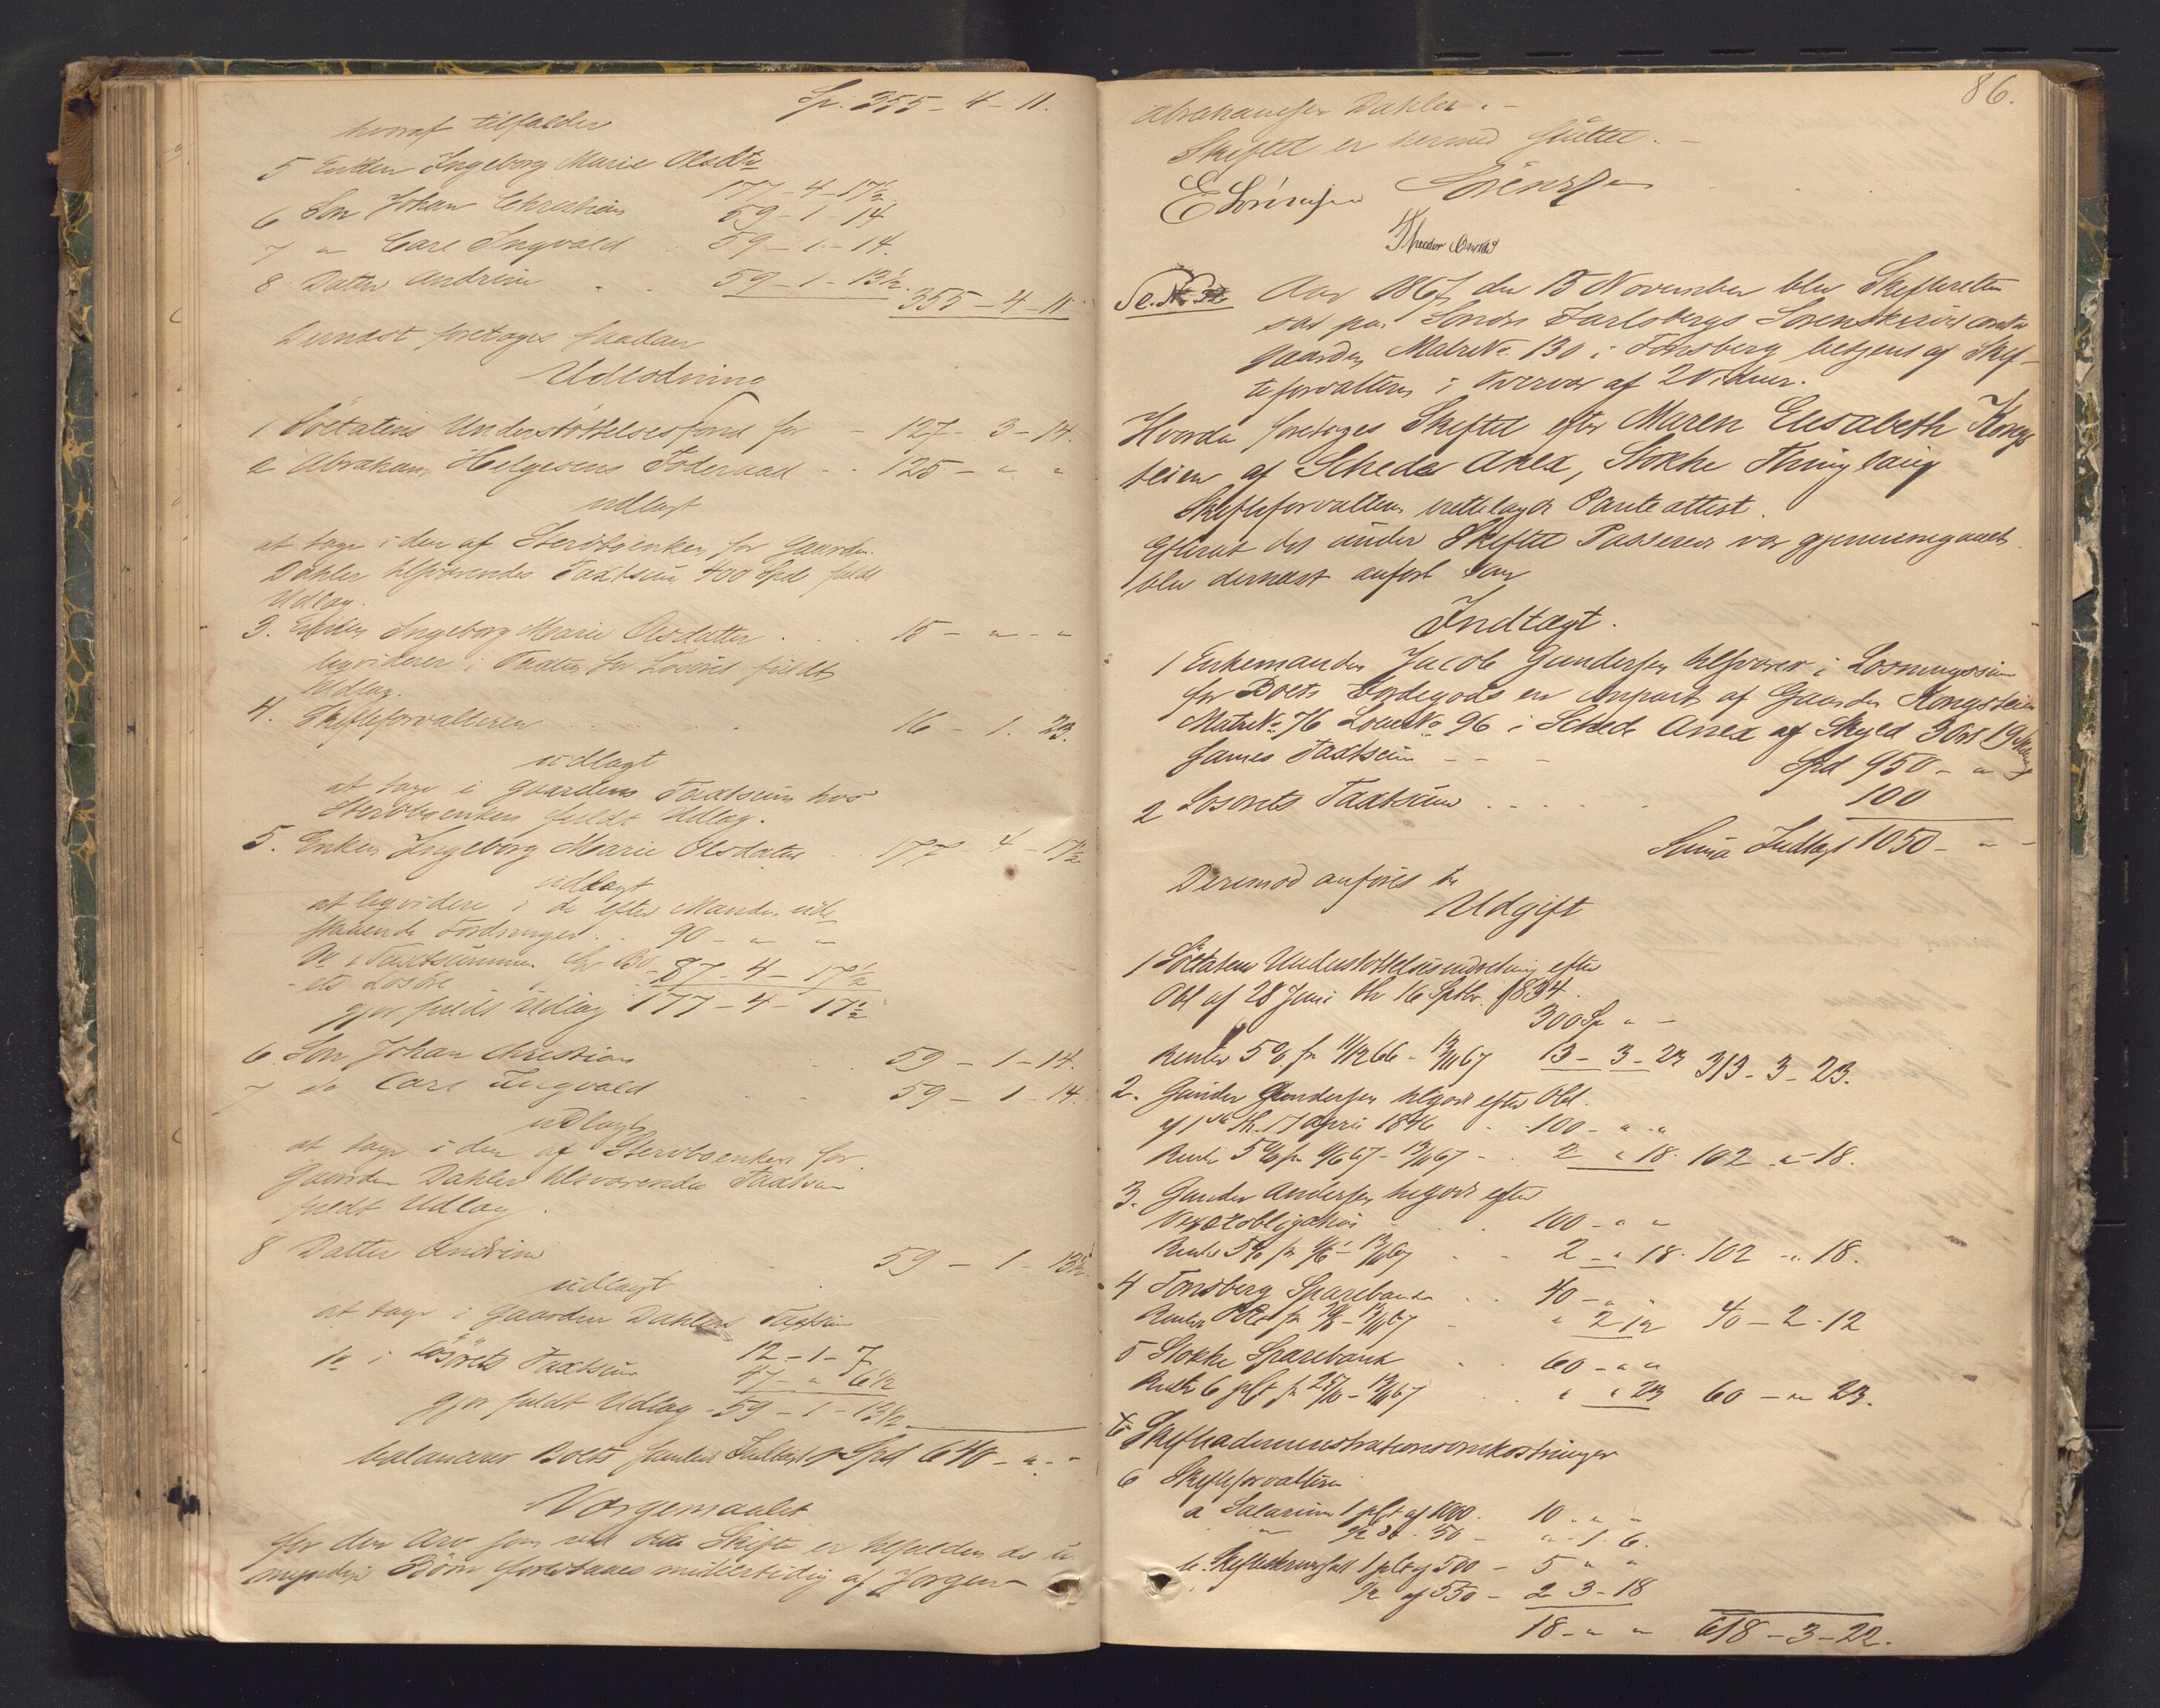 Sp. 355 - 4 - 11.
hvoraf tilfalder
5 Enken Ingeborg Marie Olsdtr 177 - 4 - 17½
6 Søn Johan Christian 59 - 1 - 14
7 " Carl Ingvald 59 - 1 - 14.
8 Datter Andrine 59 - 1 - 13½.
355 - 4 - 11
Dernæst foretoges saadan
Udlodning
1. Søetatens Understøttelsesfond for - 127 - 3 - 14.
2 Abraham Helgesens Føderaad - 125 - " "
udlagt
at tage i den af Sterboenken for Gaarden
Dahler tilsvarende Taxtsum 400 Spd fuldt
Udlæg.
3. Enken Ingeborg Marie Olsdatter 15 - " - "
liqviderer i Taxten for Løsøret fuldt
Udlæg.
4. Skifteforvalteren 16 - 1. 23.
udlagt
at tage i Gaardens Taxtsum hos
Sterboenken fuldt Udlæg.
5. Enken Ingeborg Marie Olsdatter 177 - 4 - 17½
udlagt
at liqvidere i de efter Manden ude
staaende Fordringer 90 - " "
Do i Taxtsummen for Bo
ets Løsøre 87 - 4 - 17½
gjør fuldt Udlæg 177 - 4 - 17½
6. Søn Johan Christian 59 - 1 - 14.
7 do Carl Ingvald 59 - 1 - 14.
udlagt
at tage i den af Sterboenken for
Gaarden Dahler tilsvarende Taxtsum
fuldt Udlæg.
8 Datter Andrine 59 - 1 - 13½
udlagt
at tage i Gaarden Dahlers Taxtsum 12 - 1 - 7
Do i Løsørets Taxtsum 47 - " 6½
gjør fuldt Udlæg - 59 - 1 - 13½
balancerer Boets samlede Indtægt Spd 640 - " -
Værgemaalet
for den Arv som ved dette Skifte er tilfalden de u
myndige Børn forestaaes midlertidig af Jørgen
86.
Abrahamsen Dahler. -
Skiftet er hermed sluttet. -
E Sørensen Sørensen
Theodor
Aar 1867 den 15 November blev Skifteretten
sat paa Søndre Jarlsbergs Sorenskrivercontor
Gaarden MatreNo 130 i Tønsberg betjent af Skif-
teforvalteren i Overvær af 2 Vidner.
Hvorda foretoges Skiftet efter Maren Elisabeth Kongs
teien af Schede Anex, Stokke Thinglaug
Skifteforvalteren irettelagde Panteattest.
Efterat det under Skiftet Passerede var gjennemgaaet
blev dernæst anført som
Indtægt.
1 Enkemanden Jacob Gundersen tilsvarer i Løsningssum
for Boets Jordegods en Anpart af Gaarden Kongsteien
MatreNo 76 LøbeNo 96 i Schede Anex af Skyld 3 Ort 19 Skill
sammes Taxtsum - - - Spd 950 - "
2 Løsørets Taxtsum 100
Suma Indtægt 1050 - " -
Derimod anføres til
Udgift
1 Søetatens Understøttelsesindretning efter
Obl af 28 Juni th 16 Septbr. 1834.
300 Sp " -
Renter 5% fra 11/12 66 - 15/11 67 13 - 3 - 23 313 - 3 - 23.
2. Gunder Gundersen tilgode efter Obl.
af 1ste th. 17 April 1846 100 - " "
Rente 5% fra 11/6 67 - 15/11 67 2 " 18. 102 " 18.
3. Gunder Andersen tilgode efter
Vexelobligation 100 - " "
Rente 5% fra 2 - " 18. 102 - " 18.
4 Tønsberg Sparebank 40 - "
Renter " 2 12 40 - 2 - 12
5 Stokke Sparebank 60 - " "
Rente 6 pCt fra " " 23 60 - " 23.
Skifteadministrationsomkostninger
6 Skifteforvalteren
a Salarium 1 pCt af 1000. 10 " "
" ½ do - 50 - " - 1. 6.
b. Skifteskriversall 1 pCt af 500 - 5 " "
½ af 550 - 2 - 3 - 18
18 - " " 618 - 3 - 22.